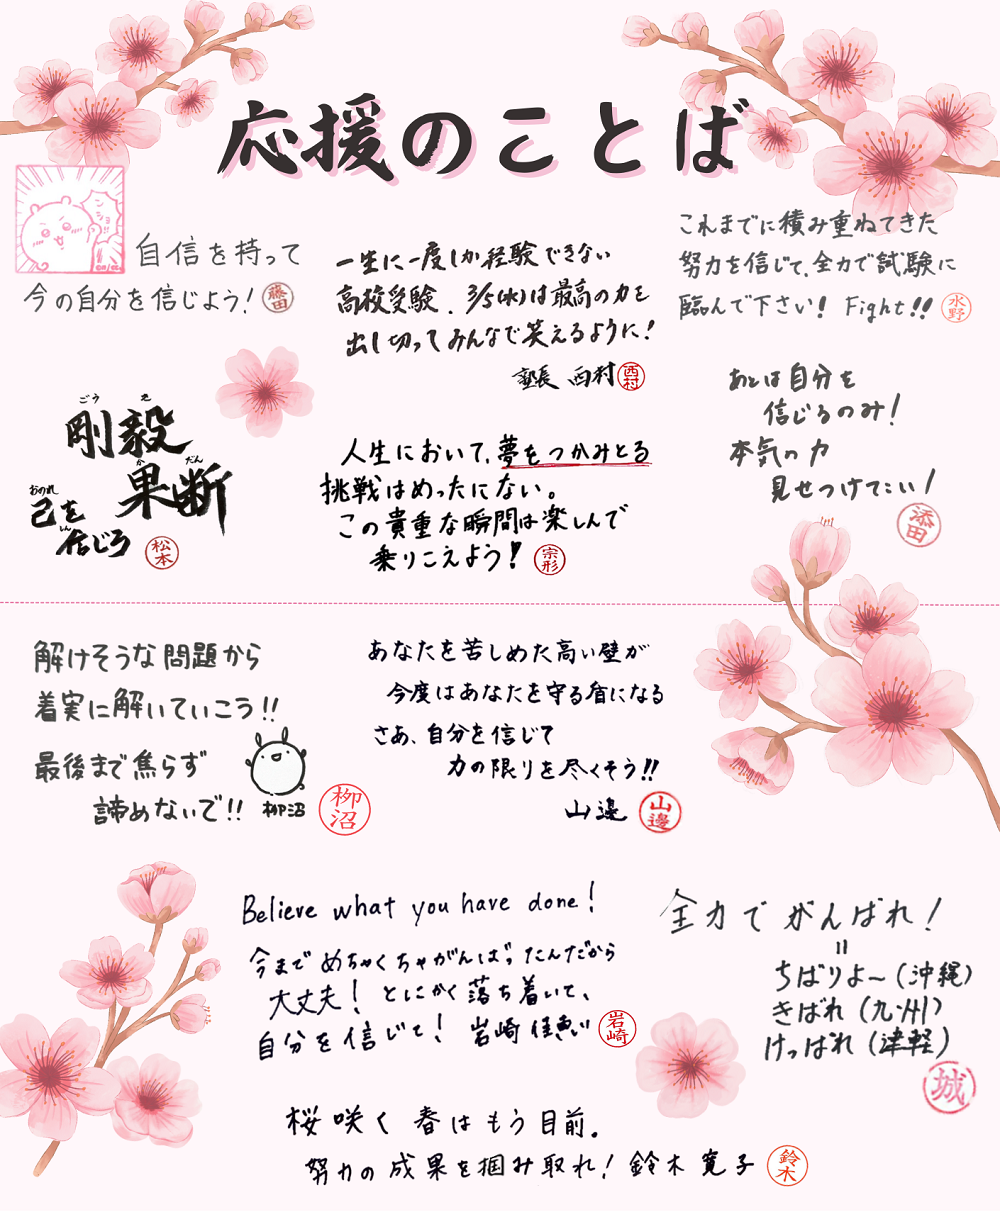 応援のことば
ンショ!!
自信を持って
今の自分を信じよう!
藤田
一生に一度しか経験できない
高校受験. 3/5(水)は最高の力を
出し切ってみんなで笑えるように!
塾長 西村
西村
これまでに積み重ねてきた
努力を信じて、全力で試験に
臨んで下さい! Fight!!
水野
ごう き
剛毅
か だん
果断
おのれ
己を
しん
信じろ
松本
人生において、夢をつかみとる
挑戦はめったにない。
この貴重な瞬間は楽しんで
乗りこえよう!
宗形
あとは自分を
信じるのみ!
本気の力
見せつけてこい!
添田
解けそうな問題から
着実に解いていこう!!
最後まで焦らず
諦めないで!!
柳沼
柳沼
あなたを苦しめた高い壁が
今度はあなたを守る盾になる
さあ、自分を信じて
力の限りを尽くそう!!
山邉
山邉
Believe what you have done!
今までめちゃくちゃがんばったんだから
大丈夫! とにかく落ち着いて、
自分を信じて! 岩崎
岩崎
全力でがんばれ!
=
ちばりよ〜(沖縄)
きばれ(九州)
けっぱれ(津軽)
城
桜咲く春はもう目前.
努力の成果を掴み取れ! 鈴木 寛子
鈴木